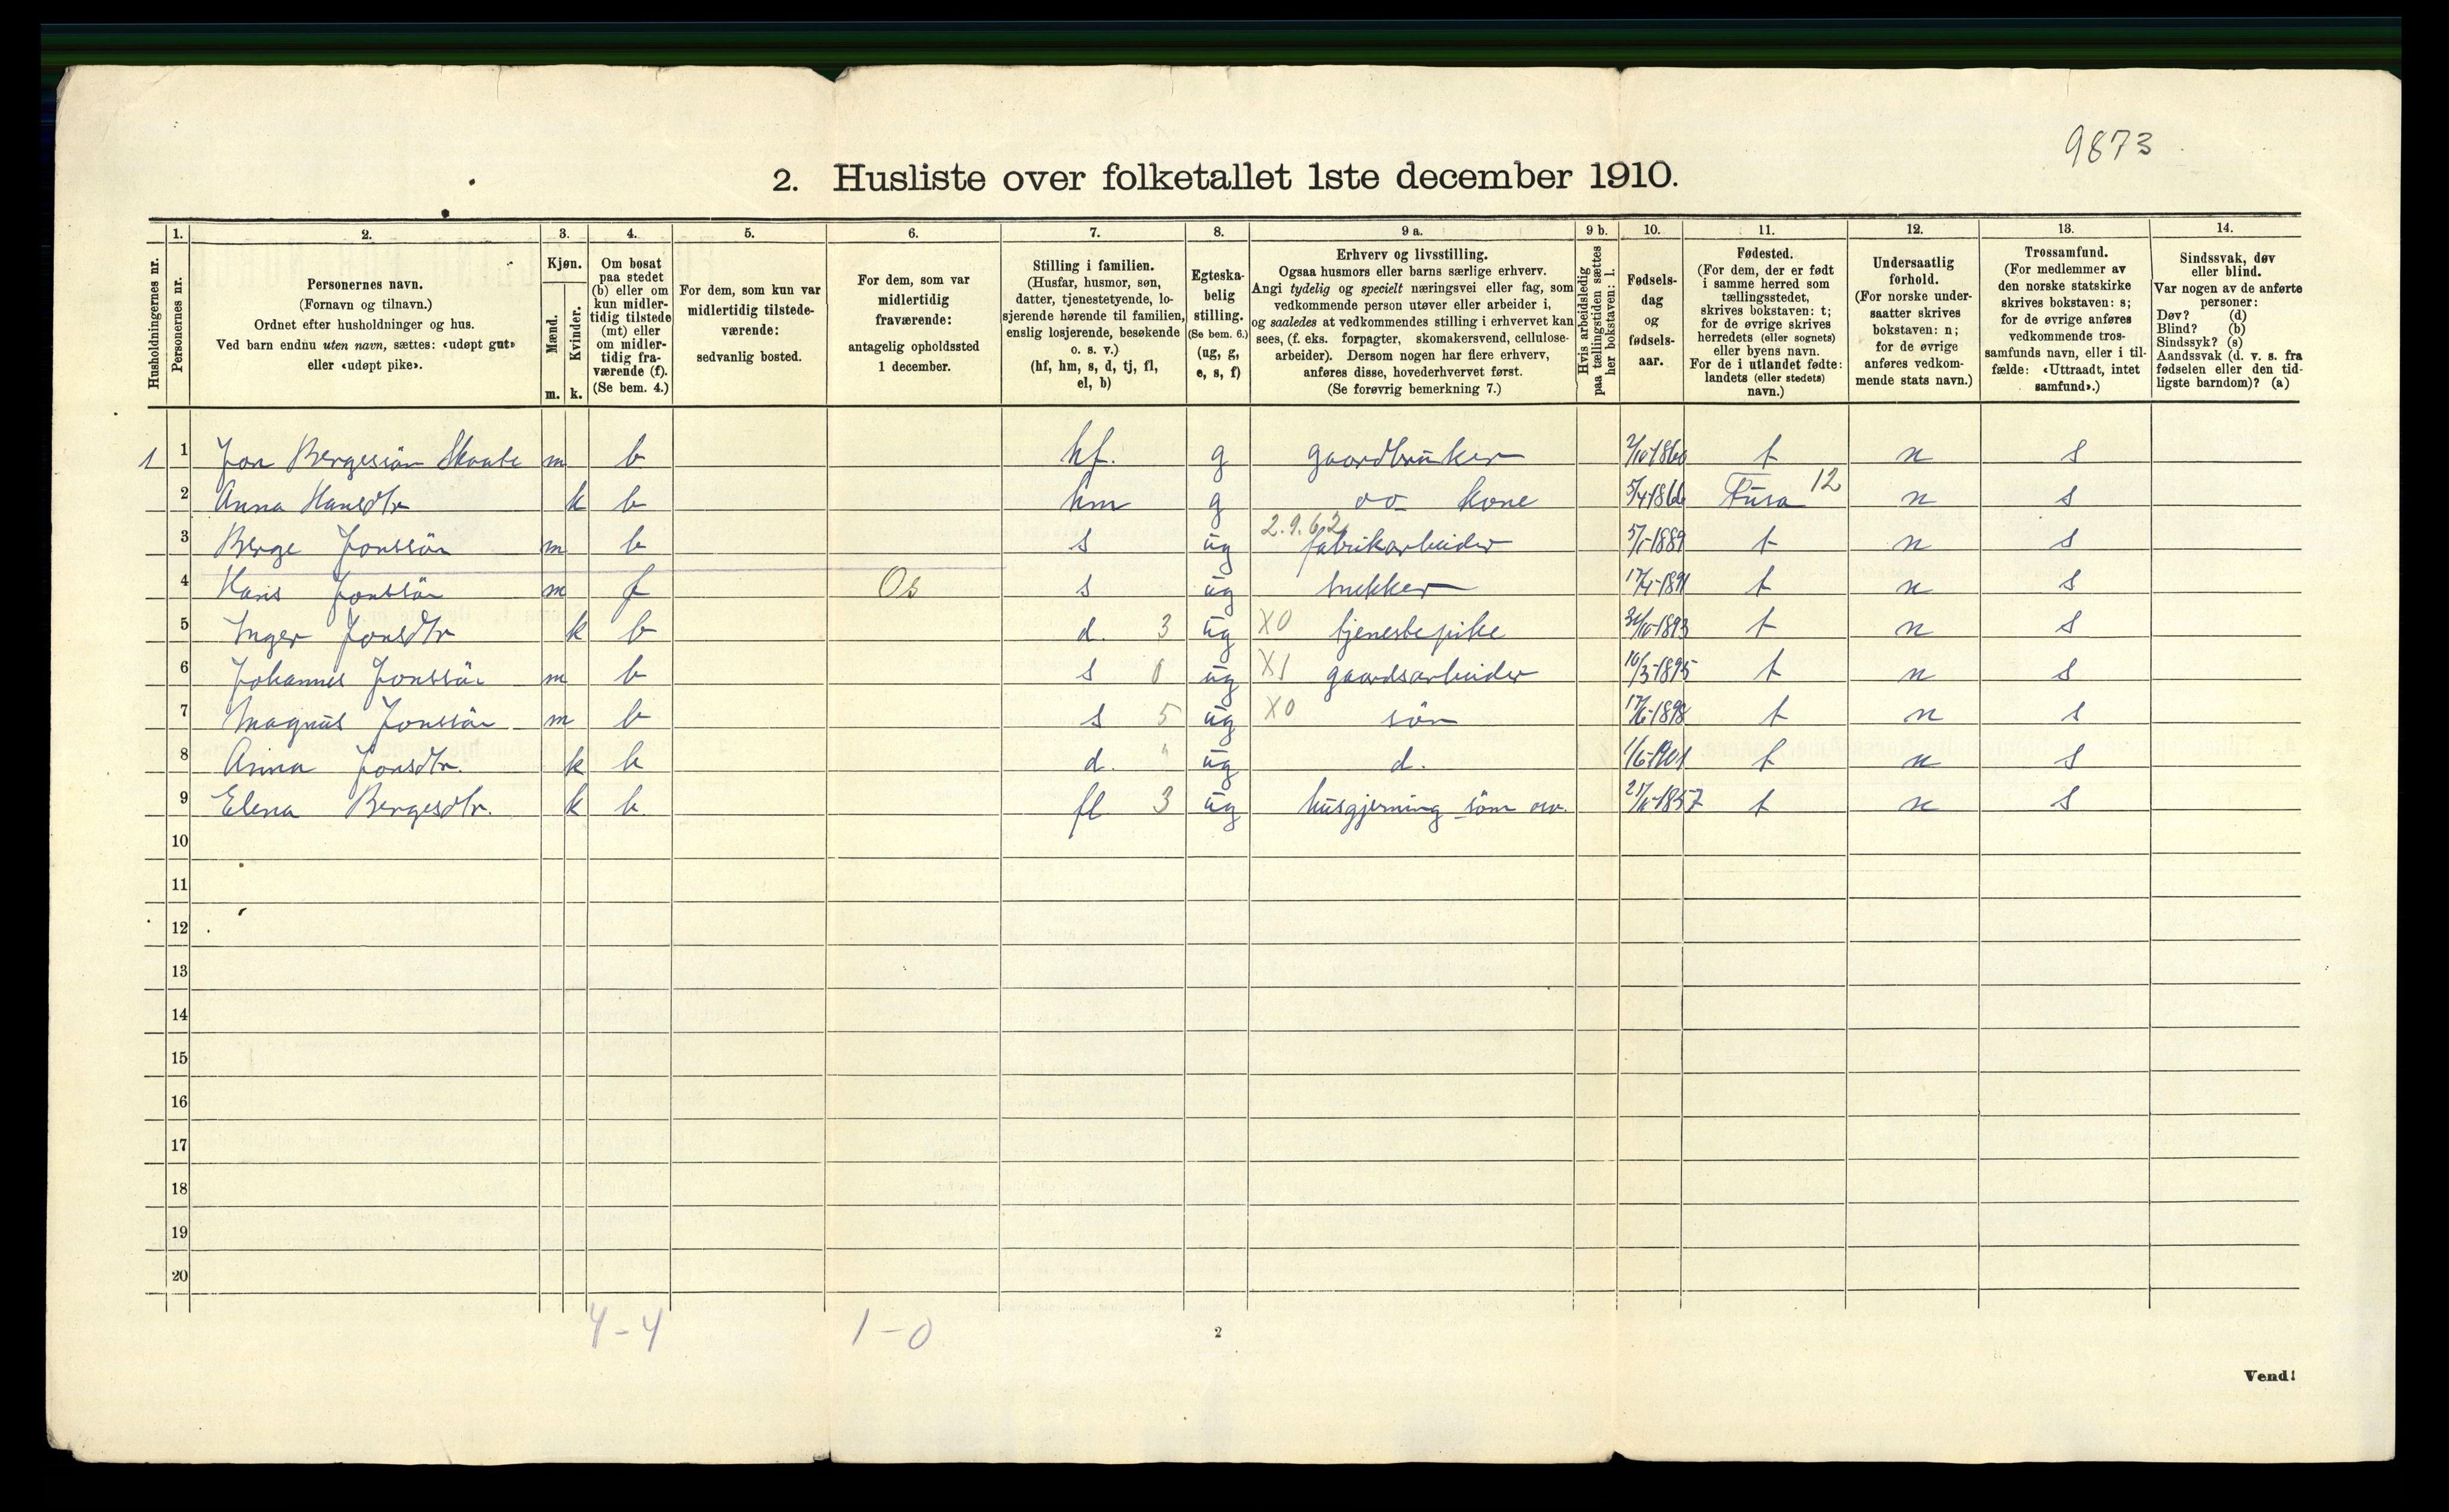 9873
2. Husliste over folketallet 1ste december 1910.
Husholdningernes nr.
1. Personernes nr.
2. Personernes navn.
(Fornavn og tilnavn.)
Ordnet efter husholdninger og hus.
Ved barn endnu uten navn, sættes: «udøpt gut»
eller «udøpt pike».
3. Kjøn.
Mænd. Kvinder.
m. k.
4. Om bosat
paa stedet
(b) eller om
kun midler-
tidig tilstede
(mt) eller
om midler-
tidig fra-
værende (f).
(Se bem. 4.)
5. For dem, som kun var
midlertidig tilstede-
værende:
sedvanlig bosted.
6. For dem, som var
midlertidig
fraværende:
antagelig opholdssted
1 december.
7. Stilling i familien.
(Husfar, husmor, søn,
datter, tjenestetyende, lo-
sjerende hørende til familien,
enslig losjerende, besøkende
o. s. v.)
(hf, hm, s, d, tj, fl,
el, b)
8. Egteska-
belig
stilling.
(Se bem. 6.)
(ug, g,
e, s, f)
9 a. Erhverv og livsstilling.
Ogsaa husmors eller barns særlige erhverv.
Angi tydelig og specielt næringsvei eller fag, som
vedkommende person utøver eller arbeider i,
og saaledes at vedkommendes stilling i erhvervet kan
sees, (f. eks. forpagter, skomakersvend, cellulose-
arbeider). Dersom nogen har flere erhverv,
anføres disse, hovederhvervet først.
(Se forøvrig bemerkning 7.)
9 b. Hvis arbeidsledig
paa tællingstiden sættes
her bokstaven: l.
10. Fødsels-
dag
og
fødsels-
aar.
11. Fødested.
(For dem, der er født
i samme herred som
tællingsstedet,
skrives bokstaven: t;
for de øvrige skrives
herredets (eller sognets)
eller byens navn.
For de i utlandet fødte:
landets (eller stedets)
navn.)
12. Undersaatlig
forhold.
(For norske under-
saatter skrives
bokstaven: n;
for de øvrige
anføres vedkom-
mende stats navn.)
13. Trossamfund.
(For medlemmer av
den norske statskirke
skrives bokstaven: s;
for de øvrige anføres
vedkommende tros-
samfunds navn, eller i til-
fælde: «Uttraadt, intet
samfund».)
14. Sindssvak, døv
eller blind.
Var nogen av de anførte
personer:
Døv? (d)
Blind? (b)
Sindssyk? (s)
Aandssvak (d. v. s. fra
fødselen eller den tid-
ligste barndom)? (a)
1 1 Jon Bergesön m b hf. g gaardbruker 2/10-1860 t n s
2 Anna Hansdtr k b hm g oo kone Fusa 12 n s
3 Berge Jonssön m b s ug 2.9.6.2 fabrikarbeider t n s
4 Hans Jonssön m f Os s ug snekker t n s
5 Inger Jonsdtr k b d. 3 ug X0 tjenestepike t n s
6 Johannes Jonssön m b s 0 ug X1 gaardsarbeider 10/3-1895 t n s
7 Magnus Jonssön m b s 5 ug X0 sön 17/6-1898 t n s
8 Anna Jonsdtr. k b d. ug d. 1/6-1901 t n s
9 Elena Bergesdtr. k b. fl 3 ug husgjerning söm osv. t n s
10
11
12
13
14
15
16
17
18
19
20
4-4 1-0
2
Vend!